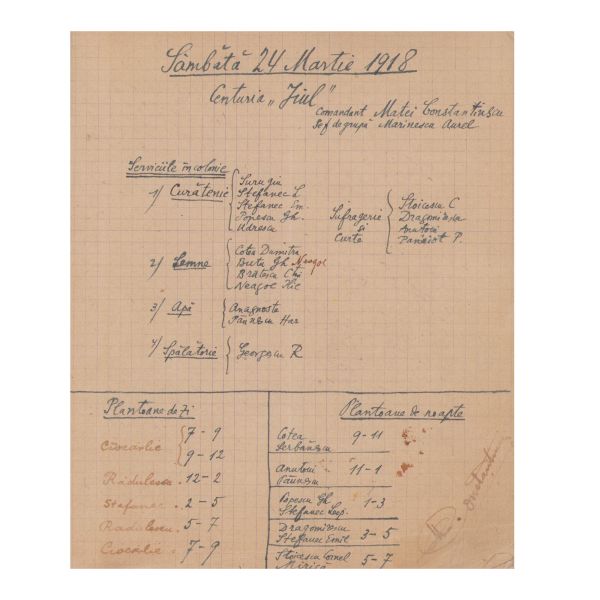 Sâmbătă 24 Martie 1918
Centuria „Jiul”
Comandant Matei Constantinescu
Șef de grupă Marinescu Aurel
Serviciile în colonie
1/ Curățenie
Surugiu
Stefanec L.
Stefanec Em.
Popescu Gh.
Udrescu
Sufragerie
și
Curte
Stoicescu C
Dragomirescu
Anutoiu
Panaiot P.
2/ Lemne
Cotea Dumitru
Buta Gh Neagoe
Brătescu
Neagoe Ilie
3/ Apă
Anagnoste
Păunescu Har
4/ Spălătorie
Georgescu R
Plantoane de zi
Ciocârlie 7 - 9
9 - 12
Rădulescu. 12 - 2
Stefanec. 2 - 5
Radulescu. 5 - 7
Ciocârlie 7 - 9
Plantoane de noapte
Cotea
Serbănescu 9 - 11
Anutoiu
Păunescu 11 - 1
Popescu Gh
Stefanec Leop. 1 - 3
Dragomirescu
Steffanec Emil 3 - 5
Stoicescu Cornel
Mirică 5 - 7